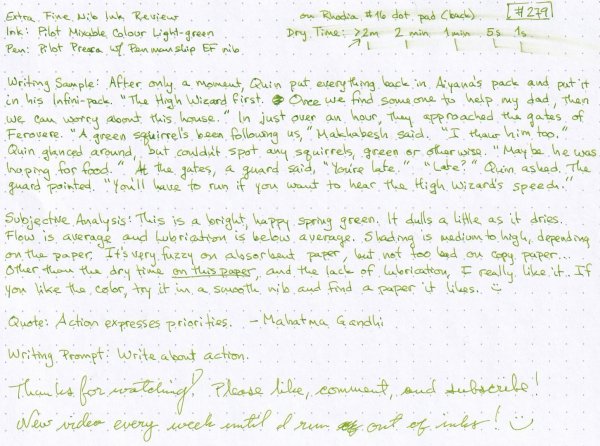 Extra Fine Nib Ink Review
on Rhodia #16 dot pad (back)
#279
Ink: Pilot Mixable Colour Light-green
Dry Time: >2m 2 min 1 min 5s 1s
Pen: Pilot Prera w/ Penmanship EF nib
Writing Sample: After only a moment, Quin put everything back in Aiyana's pack and put it
in his Infini-pack. "The High Wizard first. Once we find someone to help my dad, then
we can worry about this house." In just over an hour, they approached the gates of
Ferovere. "A green squirrel's been following us," Makhabesh said. "I thaur him too."
Quin glanced around, but couldn't spot any squirrels, green or otherwise. "Maybe he was
hoping for food." At the gates, a guard said, "You're late." "Late?" Quin asked. The
guard pointed. "You'll have to run if you want to hear the High Wizard's speech."
Subjective Analysis: This is a bright, happy spring green. It dulls a little as it dries.
Flow is average and lubrication is below average. Shading is medium to high, depending
on the paper. It's very fuzzy on absorbent paper, but not too bad on copy paper...
Other than the dry time on this paper, and the lack of lubrication, I really like it. If
you like the color, try it in a smooth nib and find a paper it likes. :)
Quote: Action expresses priorities. - Mahatma Gandhi
Writing Prompt: Write about action.
Thanks for watching! Please like, comment, and subscribe!
New video every week until I run out of inks! :)